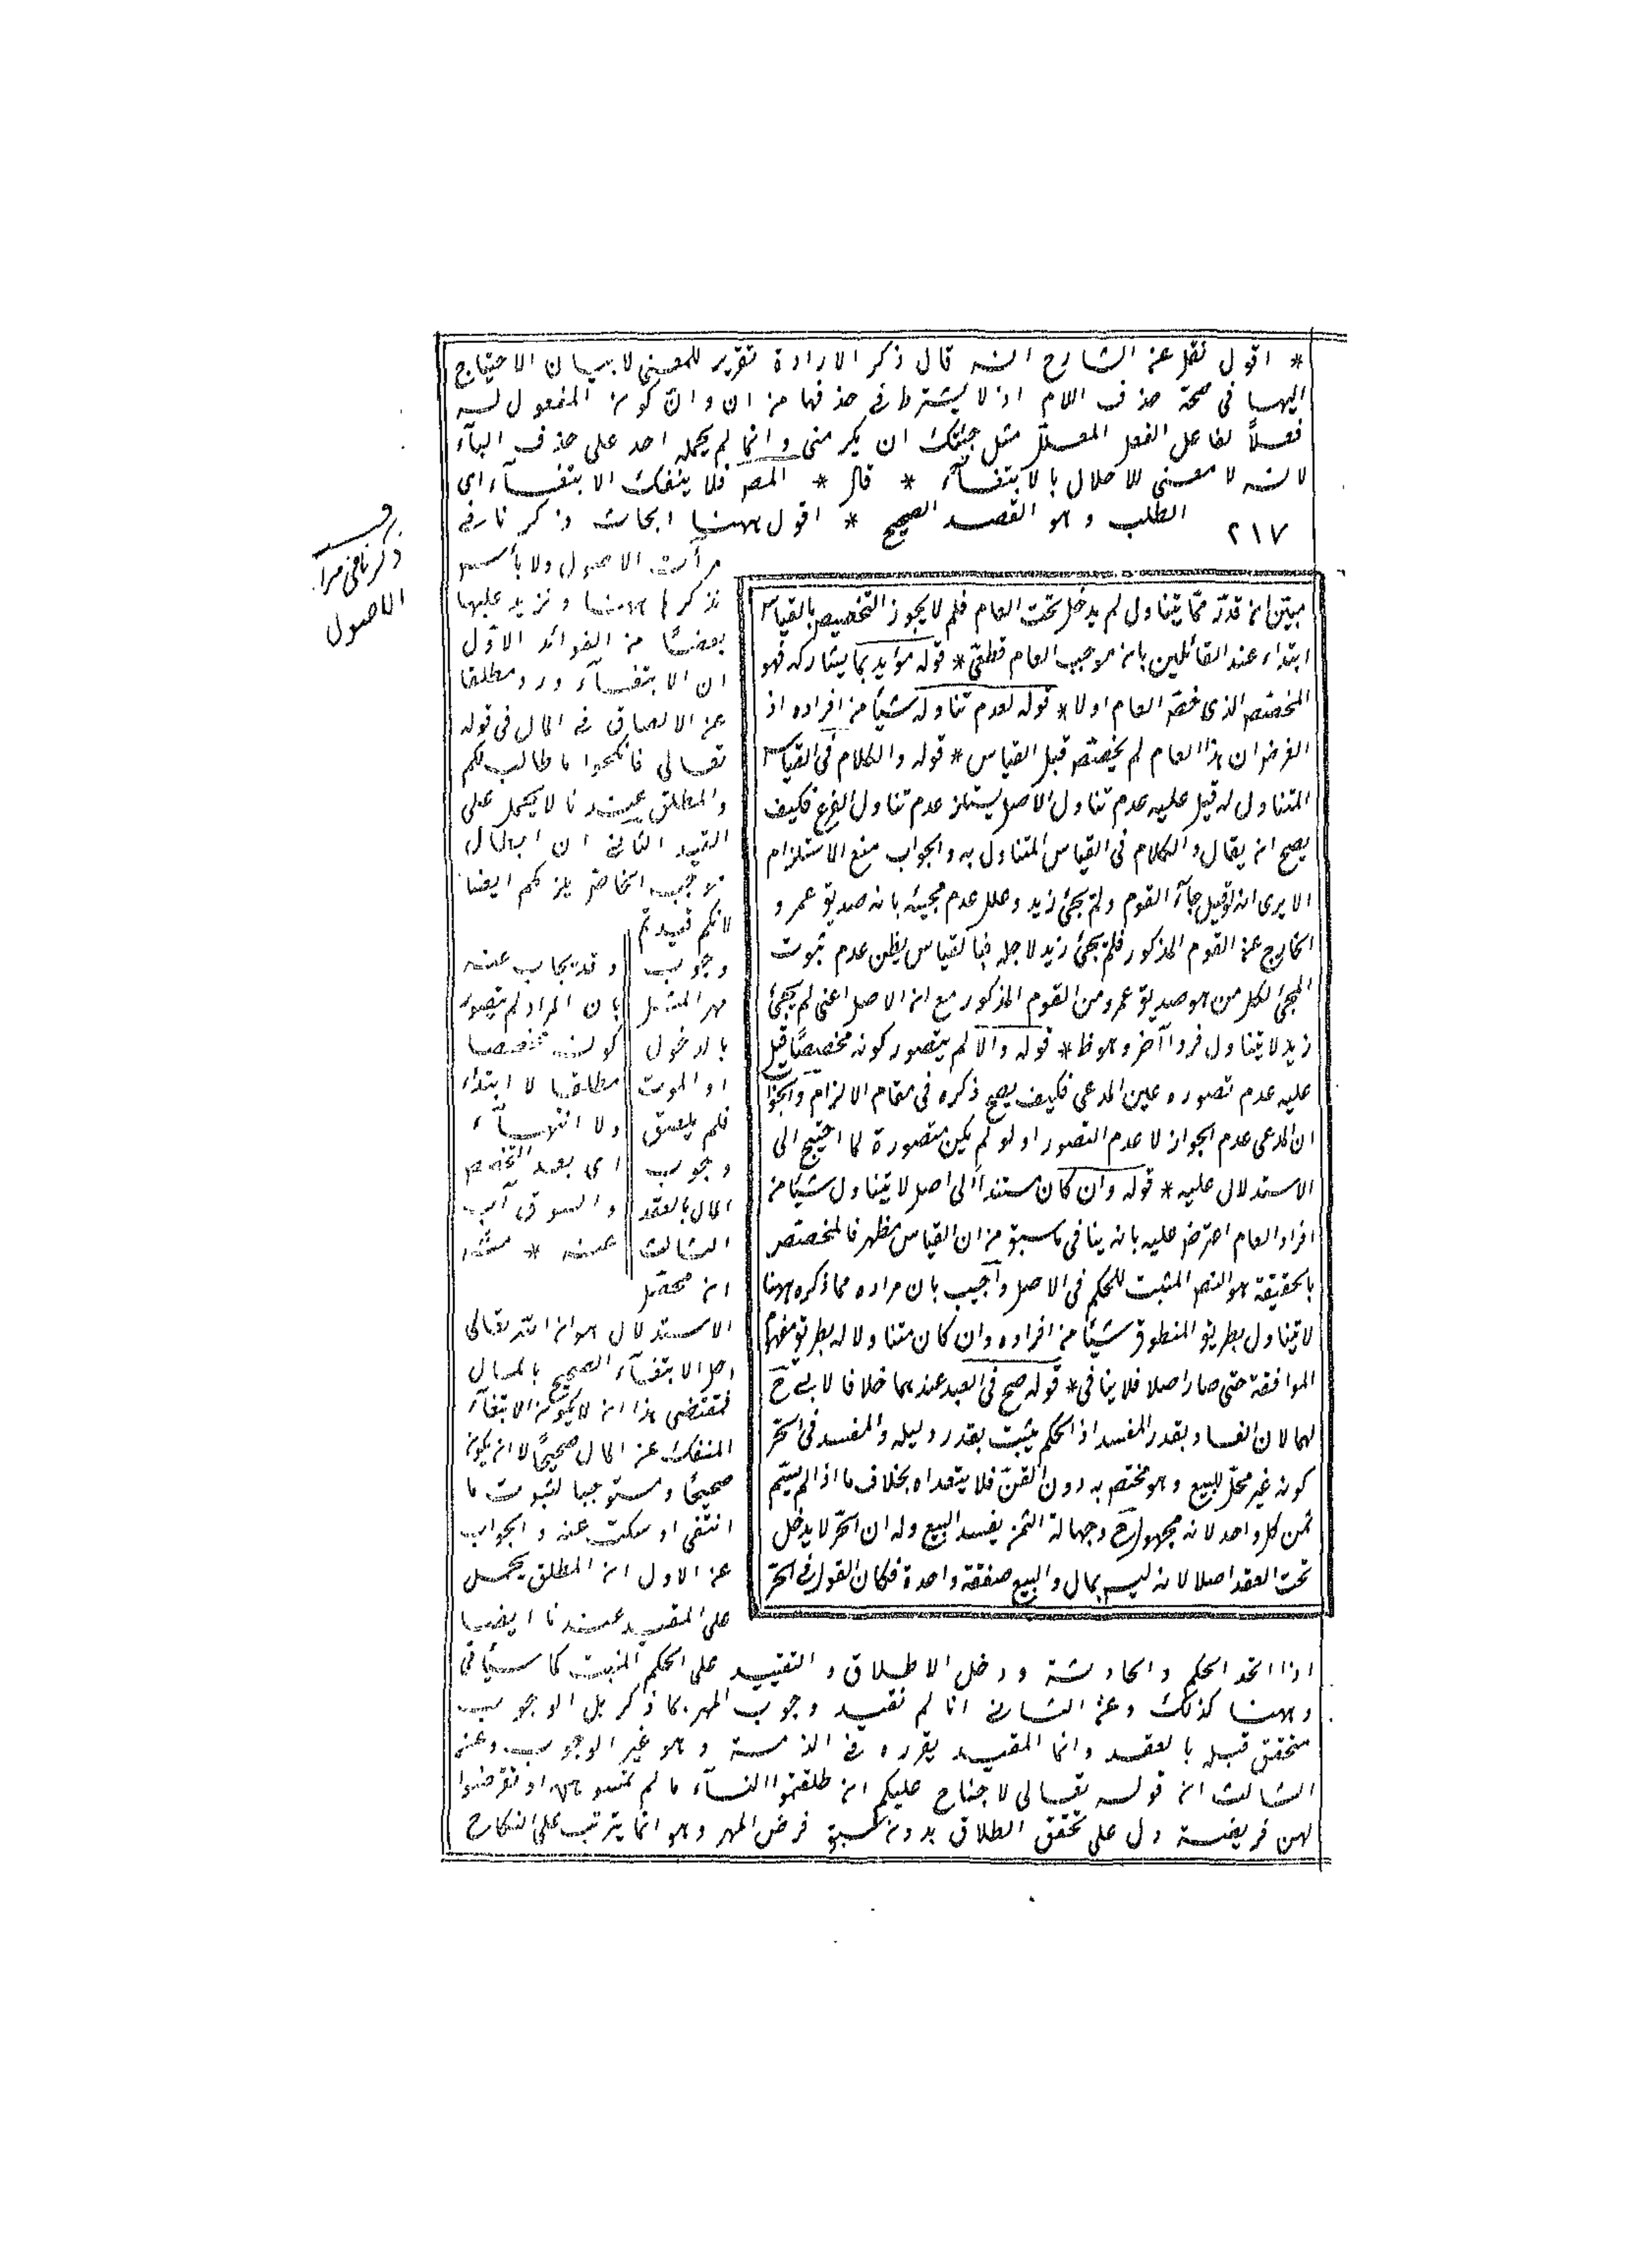 * اقول نقل عن الشارح انه قال ذكر الارادة تقرير للمعنى لا بيان الاحتياج
اليها فى صحة حذف اللام اذ لا يشترط فى حذفها من ان وانّ كون المفعول له
فعلًا لفاعل الفعل المعلل مثل جئتك ان يكرمنى وانما لم يحمله احد على حذف البآء
لانه لا معنى للاحلال بالابتغآء * قال * المص فلا ينفك الابتغآء اى
٢١٧ الطلب وهو القصد الصحيح * اقول ههنا ابحاث ذكرنا فى
مرآت الاصول ولا بأس
نذكرها ههنا ونزيد عليها
بعضًا من الفوائد الاوّل
ان الابتغآء ورد مطلقا
عن الالصاق فى المال فى قوله
تعالى فانكحوا ما طاب لكم
والمطلق عندنا لا يحمل على
القيد الثانى ان ابطال
موجب الخاص يلزمكم ايضا
لانكم قيدتم
وجوب
مهر المثل
بالدخول
او الموت
فلم يلصق
وجوب
المال بالعقد
الثالث
ان محصّل
الاستدلال هو ان الله تعالى
احل الابتغآء الصحيح بالمال
فمقتضى هذا ان لا يكون الابتغآء
المنفك عن المال صحيحًا لا ان يكون
صحيحًا ومستوجبا لثبوت ما
انتفى او سكت عنه والجواب
عن الاول ان المطلق يحمل
على المقيد عندنا ايضا
اذا اتحد الحكم والحادثة ودخل الاطلاق والتقييد على الحكم المثبت كما سيأتى
وههنا كذلك وعن الثانى انا لم نقيد وجوب المهر بما ذكر بل الوجوب
متحقق قبله بالعقد وانما المقيد يقرره فى الذمة وهو غير الوجوب وعن
الثالث ان قوله تعالى لا جناح عليكم ان طلقتموا النسآء ما لم تمسوهن او تفرضوا
لهن فريضة دل على تحقق الطلاق بدون سبق فرض المهر وهو انما يترتب على النكاح
وقد يجاب عنه
بان المراد لم يتصور
كونه مخصصا
مطلقا لا ابتداء
ولا انتهآء
اى بعد التخصيص
والسوق آب
عنه * منه
ذكرنا فى مرا
الاصول
مبيّن ان قدرّ ممّا يتناول لم يدخل تحت العام فلم لا يجوز التخصيص بالقياس
ابتداء عند القائلين بان موجب العام قطعّى * قوله مؤيد بما يشاركه فهو
المخصّص الذى خصّ العام اولا * قوله لعدم تناوله شيئًا من افراده اذ
الفرض ان هذا العام لم يخصّص قبل القياس * قوله والكلام فى القياس
المتناول له قيل عليه عدم تناول الاصل يستلزم عدم تناول الفرع فكيف
يصح ان يقال والكلام فى القياس المتناول به والجواب منع الاستلزام
الا يرى انه لو قيل جآء القوم ولم يجئ زيد وعلل عدم مجيئه بانه صديق عمرو
الخارج عن القوم المذكور فلم يجئ زيد لاجله فبالقياس يظن عدم ثبوت
المجئ لكل من هو صديق عمرو من القوم المذكور مع ان الاصل اعنى لم يجئ
زيد لا يتناول فردا آخر وهو ظ * قوله والا لم يتصور كونه مخصصًا قيل
عليه عدم تصوره عين المدعى فكيف يصح ذكره فى مقام الالزام والجوا
ان المدعى عدم الجواز لا عدم التصور او لو لم يكن متصورة لما احتيج الى
الاستدلال عليه * قوله وان كان مستندا الى اصل لا يتناول شيئًا من
افراد العام اعترض عليه بانه ينافى ما سبق من ان القياس مظهر فالمخصّص
بالحقيقة هو النص المثبت للحكم فى الاصل واجيب بان مراده مما ذكره ههنا
لا يتناول بطريق المنطوق شيئًا من افراده وان كان متناولا له بطريق مفهوم
الموافقة حتى صار اصلا فلا ينافى * قوله صح فى العبد عندهما خلافا لابى ح
لهما لان الفساد بقدر المفسد اذ الحكم يثبت بقدر دليله والمفسد فى الحّر
كونه غير محلّ للبيع وهو مختص به دون القنّ فلا يتعداه بخلاف ما اذا لم يسّم
ثمن كل واحد لانه مجهول ح وجهالة الثمن يفسد البيع وله ان الحّر لا يدخل
تحت العقد اصلا لانه ليس بمال والبيع صفقة واحدة فكان القول فى الحّر